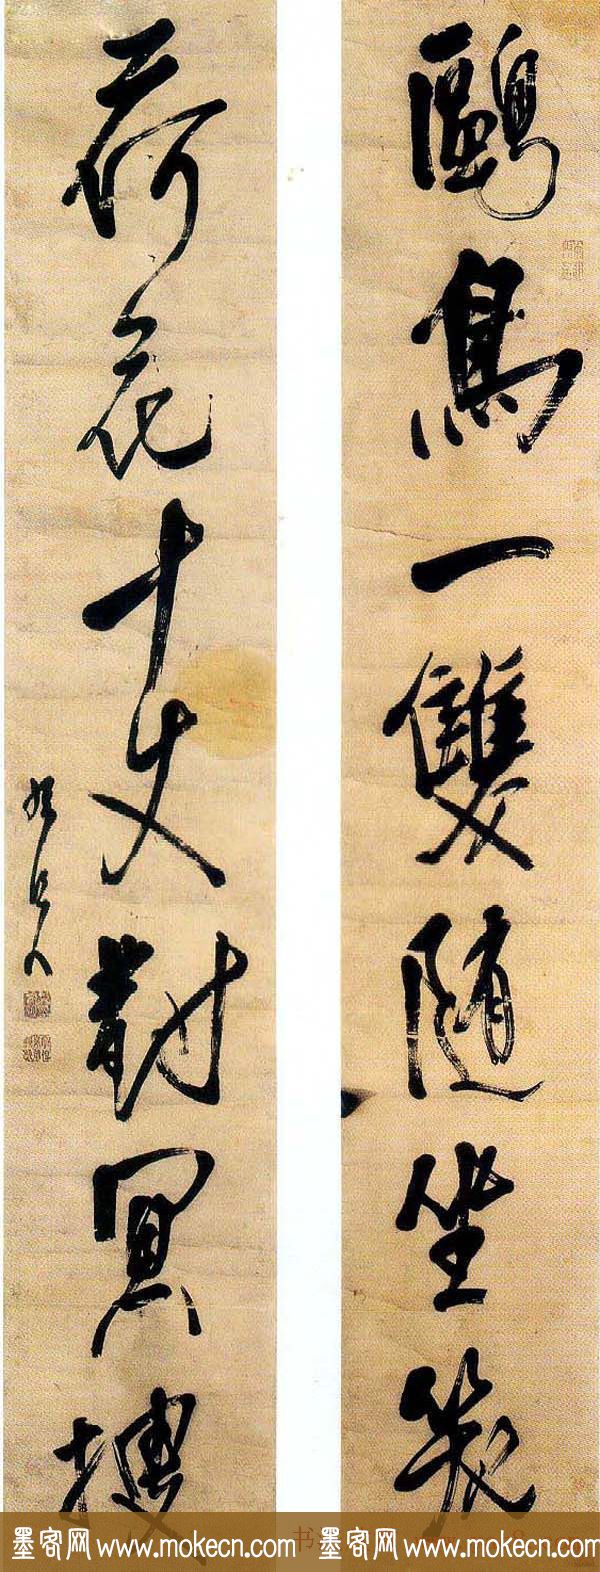 鷗鳥一雙隨坐笑
荷花十丈對冥搜
墨客网 www.mokecn.com 书 墨客网 www.mokecn.com